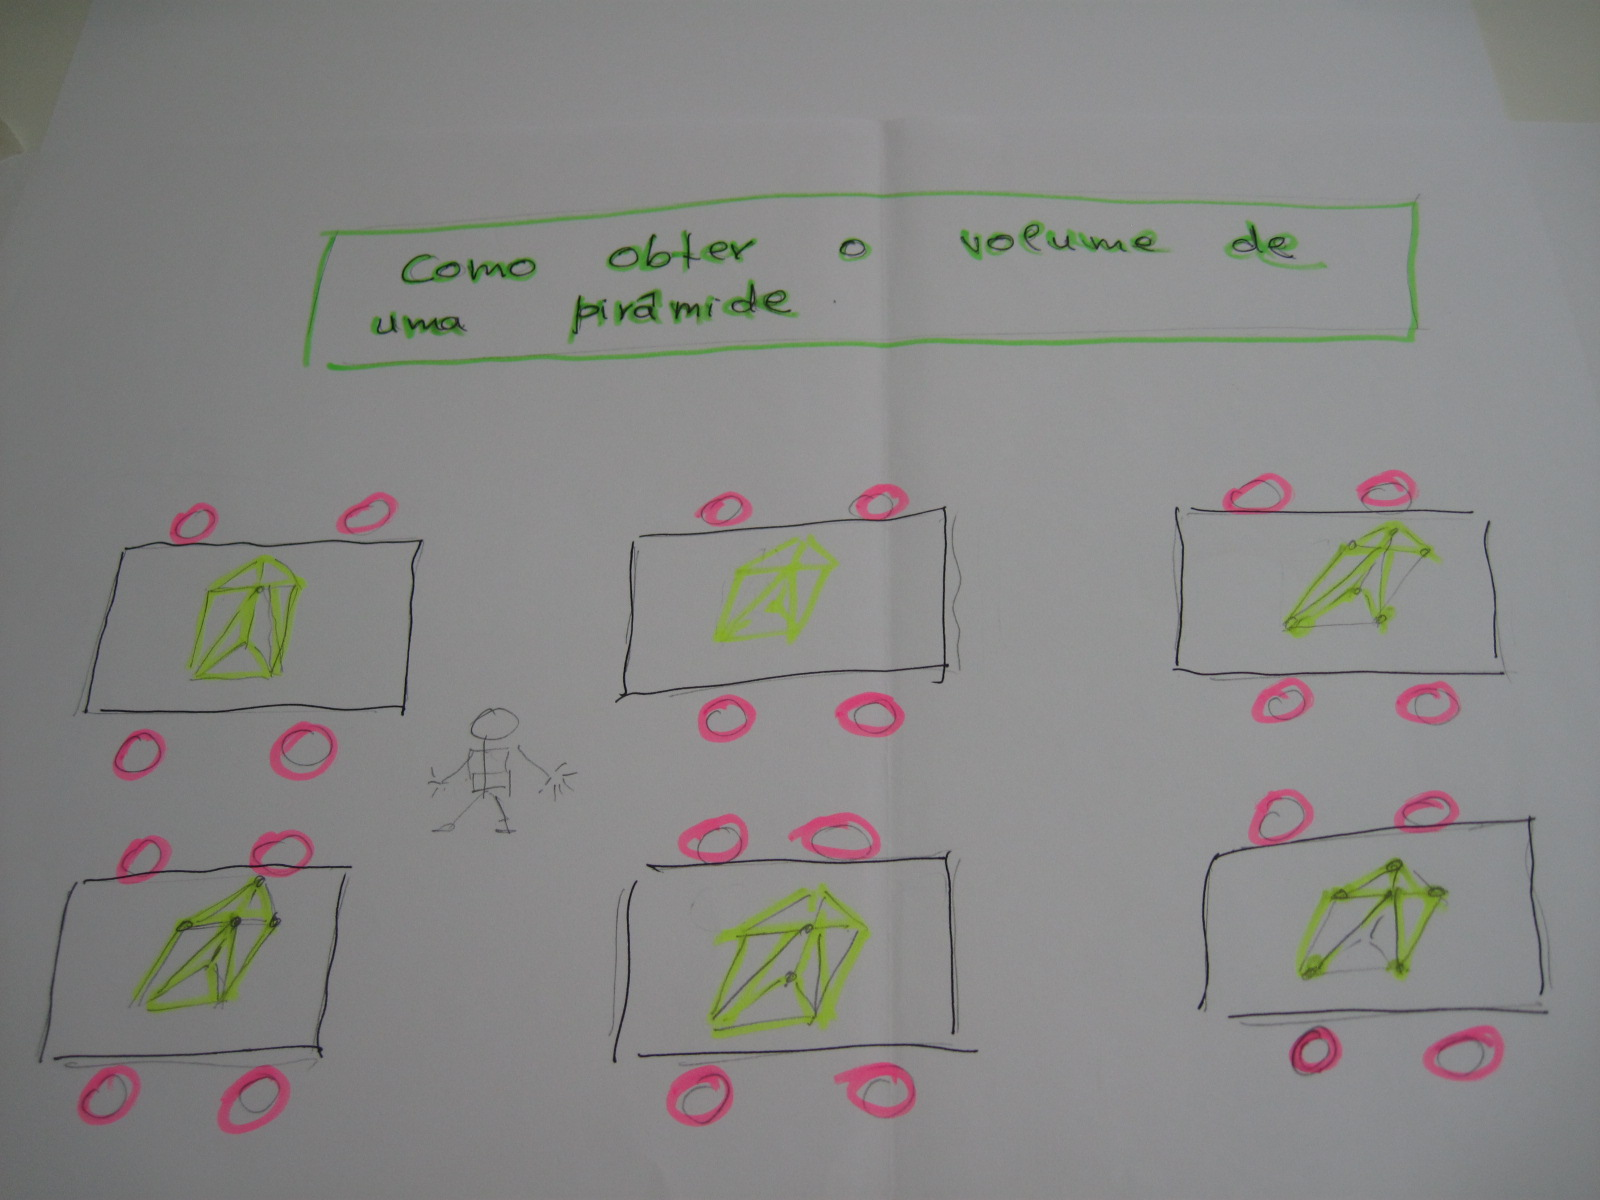 Como obter o volume de
uma pirâmide